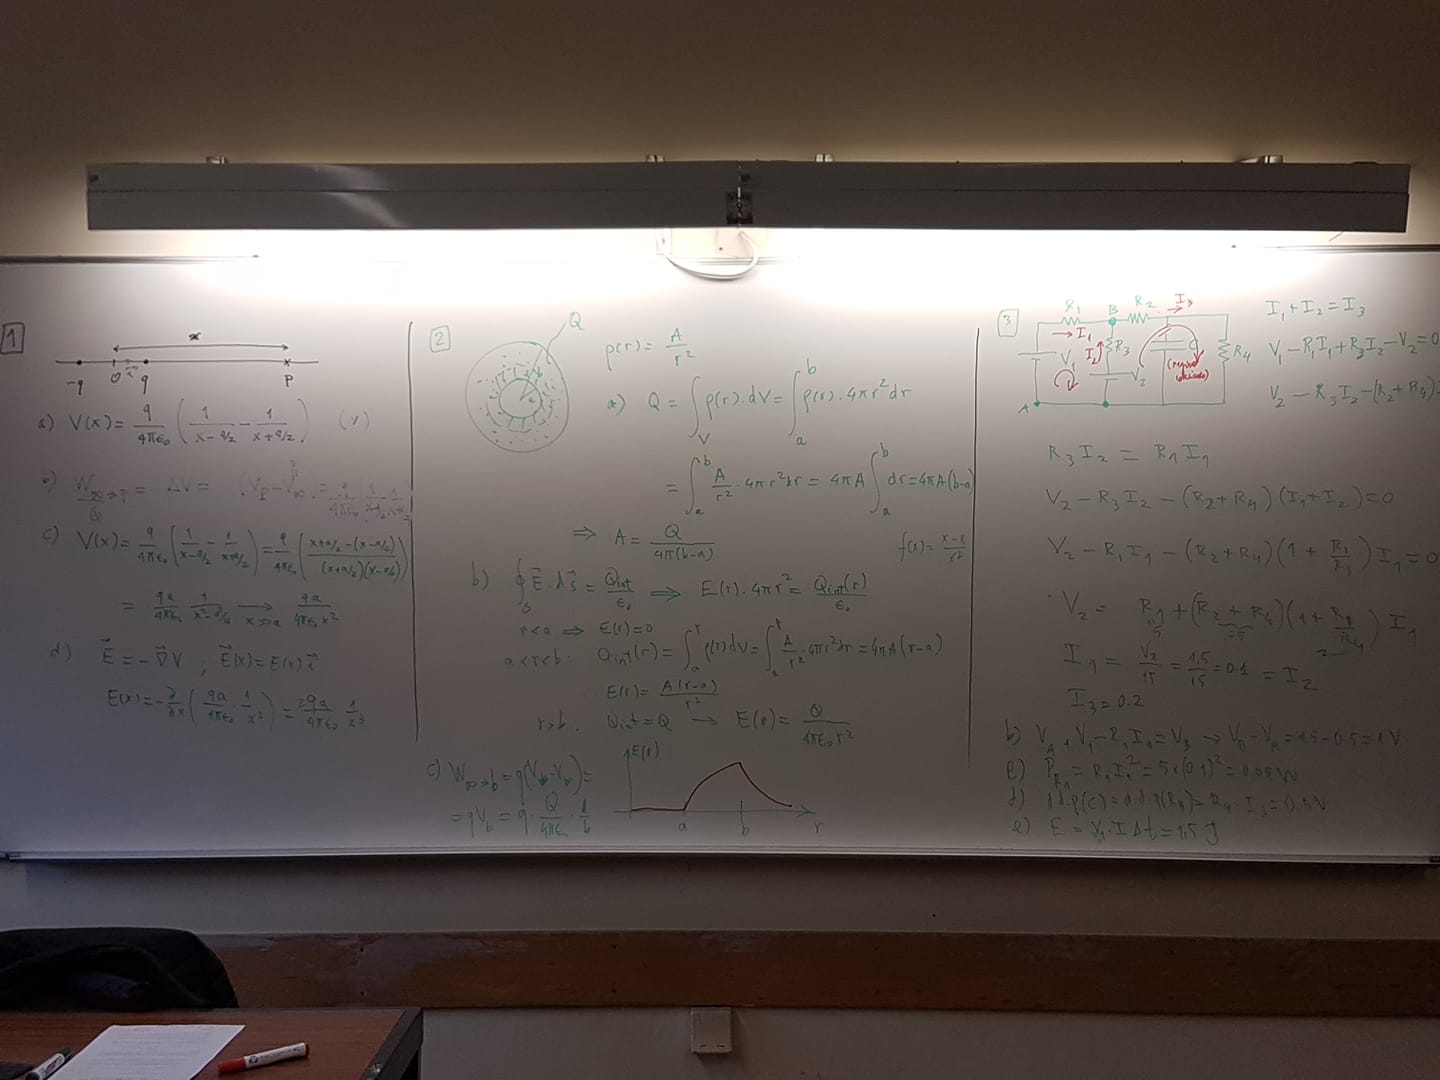 1
x
-q
O
q
P
a) V(x) = q/4πε₀ (1/(x-a/2) - 1/(x+a/2)) (V)
b) W∞→P/Q = ΔV = (V_P - V∞) = q/4πε₀
c) V(x) = q/4πε₀ (1/(x-a/2) - 1/(x+a/2)) = q/4πε₀ ((x+a/2-(x-a/2))/((x+a/2)(x-a/2)))
= qa/4πε₀ 1/(x²-a²/4) → x≫a qa/4πε₀x²
d) E⃗ = -∇⃗V ; E⃗(x) = E(x) i⃗
E(x) = -∂/∂x (qa/4πε₀ · 1/x²) = 2qa/4πε₀ 1/x³
2
Q
ρ(r) = A/r²
a) Q = ∫_V ρ(r).dV = ∫_a^b ρ(r).4πr²dr
= ∫_a^b A/r² .4πr²dr = 4πA ∫_a^b dr = 4πA(b-a)
⇒ A = Q/4π(b-a)
b) ∮_S E⃗.dS⃗ = Qint/ε₀ ⇒ E(r).4πr² = Qint(r)/ε₀
r<a ⇒ E(r)=0
a<r<b: Qint(r) = ∫_a^r ρ(r)dV = ∫_a^r A/r² .4πr²dr = 4πA(r-a)
E(r) = A(r-a)/r²
r>b. Qint = Q → E(r) = Q/4πε₀r²
c) W∞→b = q(V_b-V∞) =
= qV_b = q · Q/4πε₀ · 1/b
E(r)
a
b
r
3
R₁
B
R₂
I₃
I₁
V₁
I₂
R₃
V₂
C
R₄
A
I₁+I₂=I₃
V₁-R₁I₁+R₃I₂-V₂=0
V₂-R₃I₂-(R₂+R₄)
R₃I₂ = R₁I₁
V₂-R₃I₂-(R₂+R₄)(I₁+I₂)=0
V₂-R₁I₁-(R₂+R₄)(1+R₁/R₃)I₁=0
I₁ = V₂/15 = 1,5/15 = 0.1 = I₂
I₃=0.2
b) V_A+V₁-R₁I₁=V_B → V_B-V_A=1.5-0.5=1V
P_R₁ = R₁I₁² = 5×(0.1)² = 0.05W
d) d.d.p(C)=d.d.p(R₄)=R₄·I₃
e) E = V₁·IΔt=1,5J